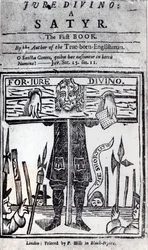 JURE DIVINO:
A
SATYR.
The First BOOK.
By the Author of the True-born-Englishman.
O Sanctas Gentes, quibus hæc nascuntur in hortis
Numina! Juv. Sat. 15. lin. 11.
FOR JURE DIVINO.
London: Printed by P. Hills in Black-Fryers.